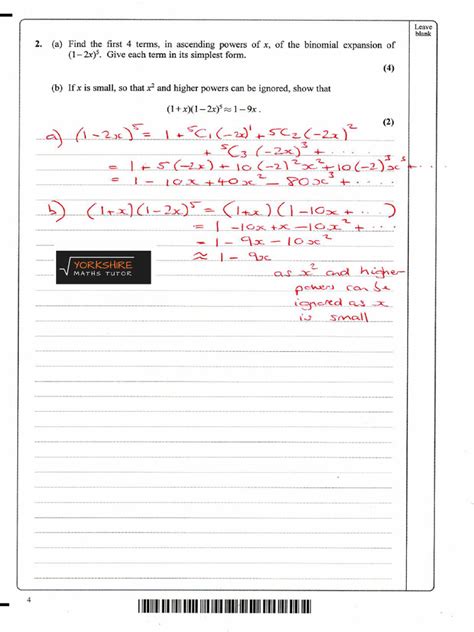 Leave
blank
2. (a) Find the first 4 terms, in ascending powers of x, of the binomial expansion of
(1 – 2x)⁵. Give each term in its simplest form.
(4)
(b) If x is small, so that x² and higher powers can be ignored, show that
(1 + x)(1 – 2x)⁵ ≈ 1 – 9x .
(2)
a) (1-2x)⁵ = 1 + ⁵C₁(-2x)¹ + ⁵C₂(-2x)²
+ ⁵C₃(-2x)³ + ....
= 1 + 5(-2x) + 10(-2)²x² + 10(-2)³x³ + ...
= 1 - 10x + 40x² - 80x³ + ....
b) (1+x)(1-2x)⁵ = (1+x)(1-10x + ...)
= 1 - 10x + x - 10x² + ...
= 1 - 9x - 10x²
≈ 1 - 9x
as x² and higher
powers can be
ignored as x
is small
YORKSHIRE
MATHS TUTOR
4